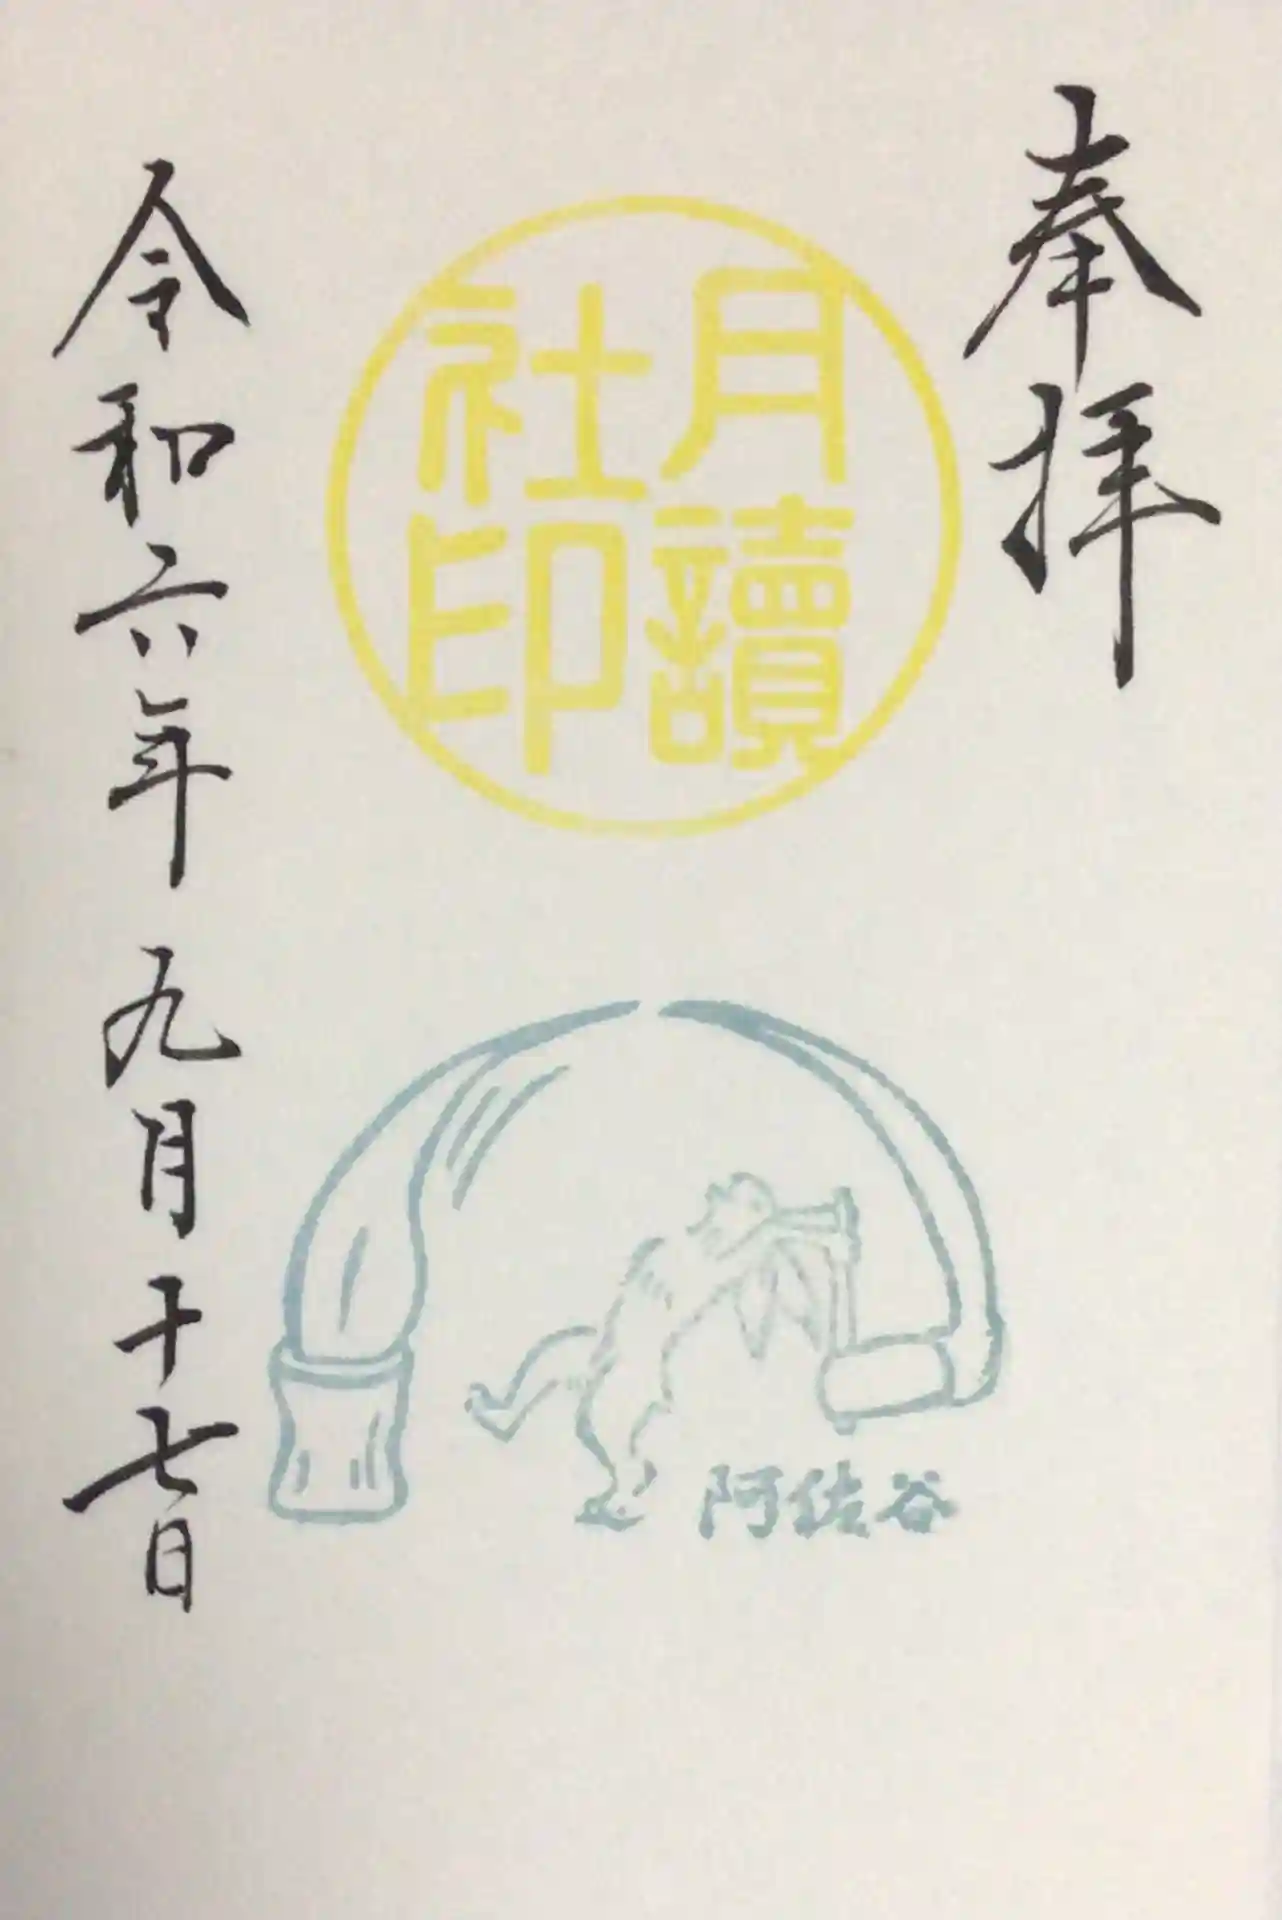 奉拝
月讀
社印
阿佐谷
令和六年九月十七日